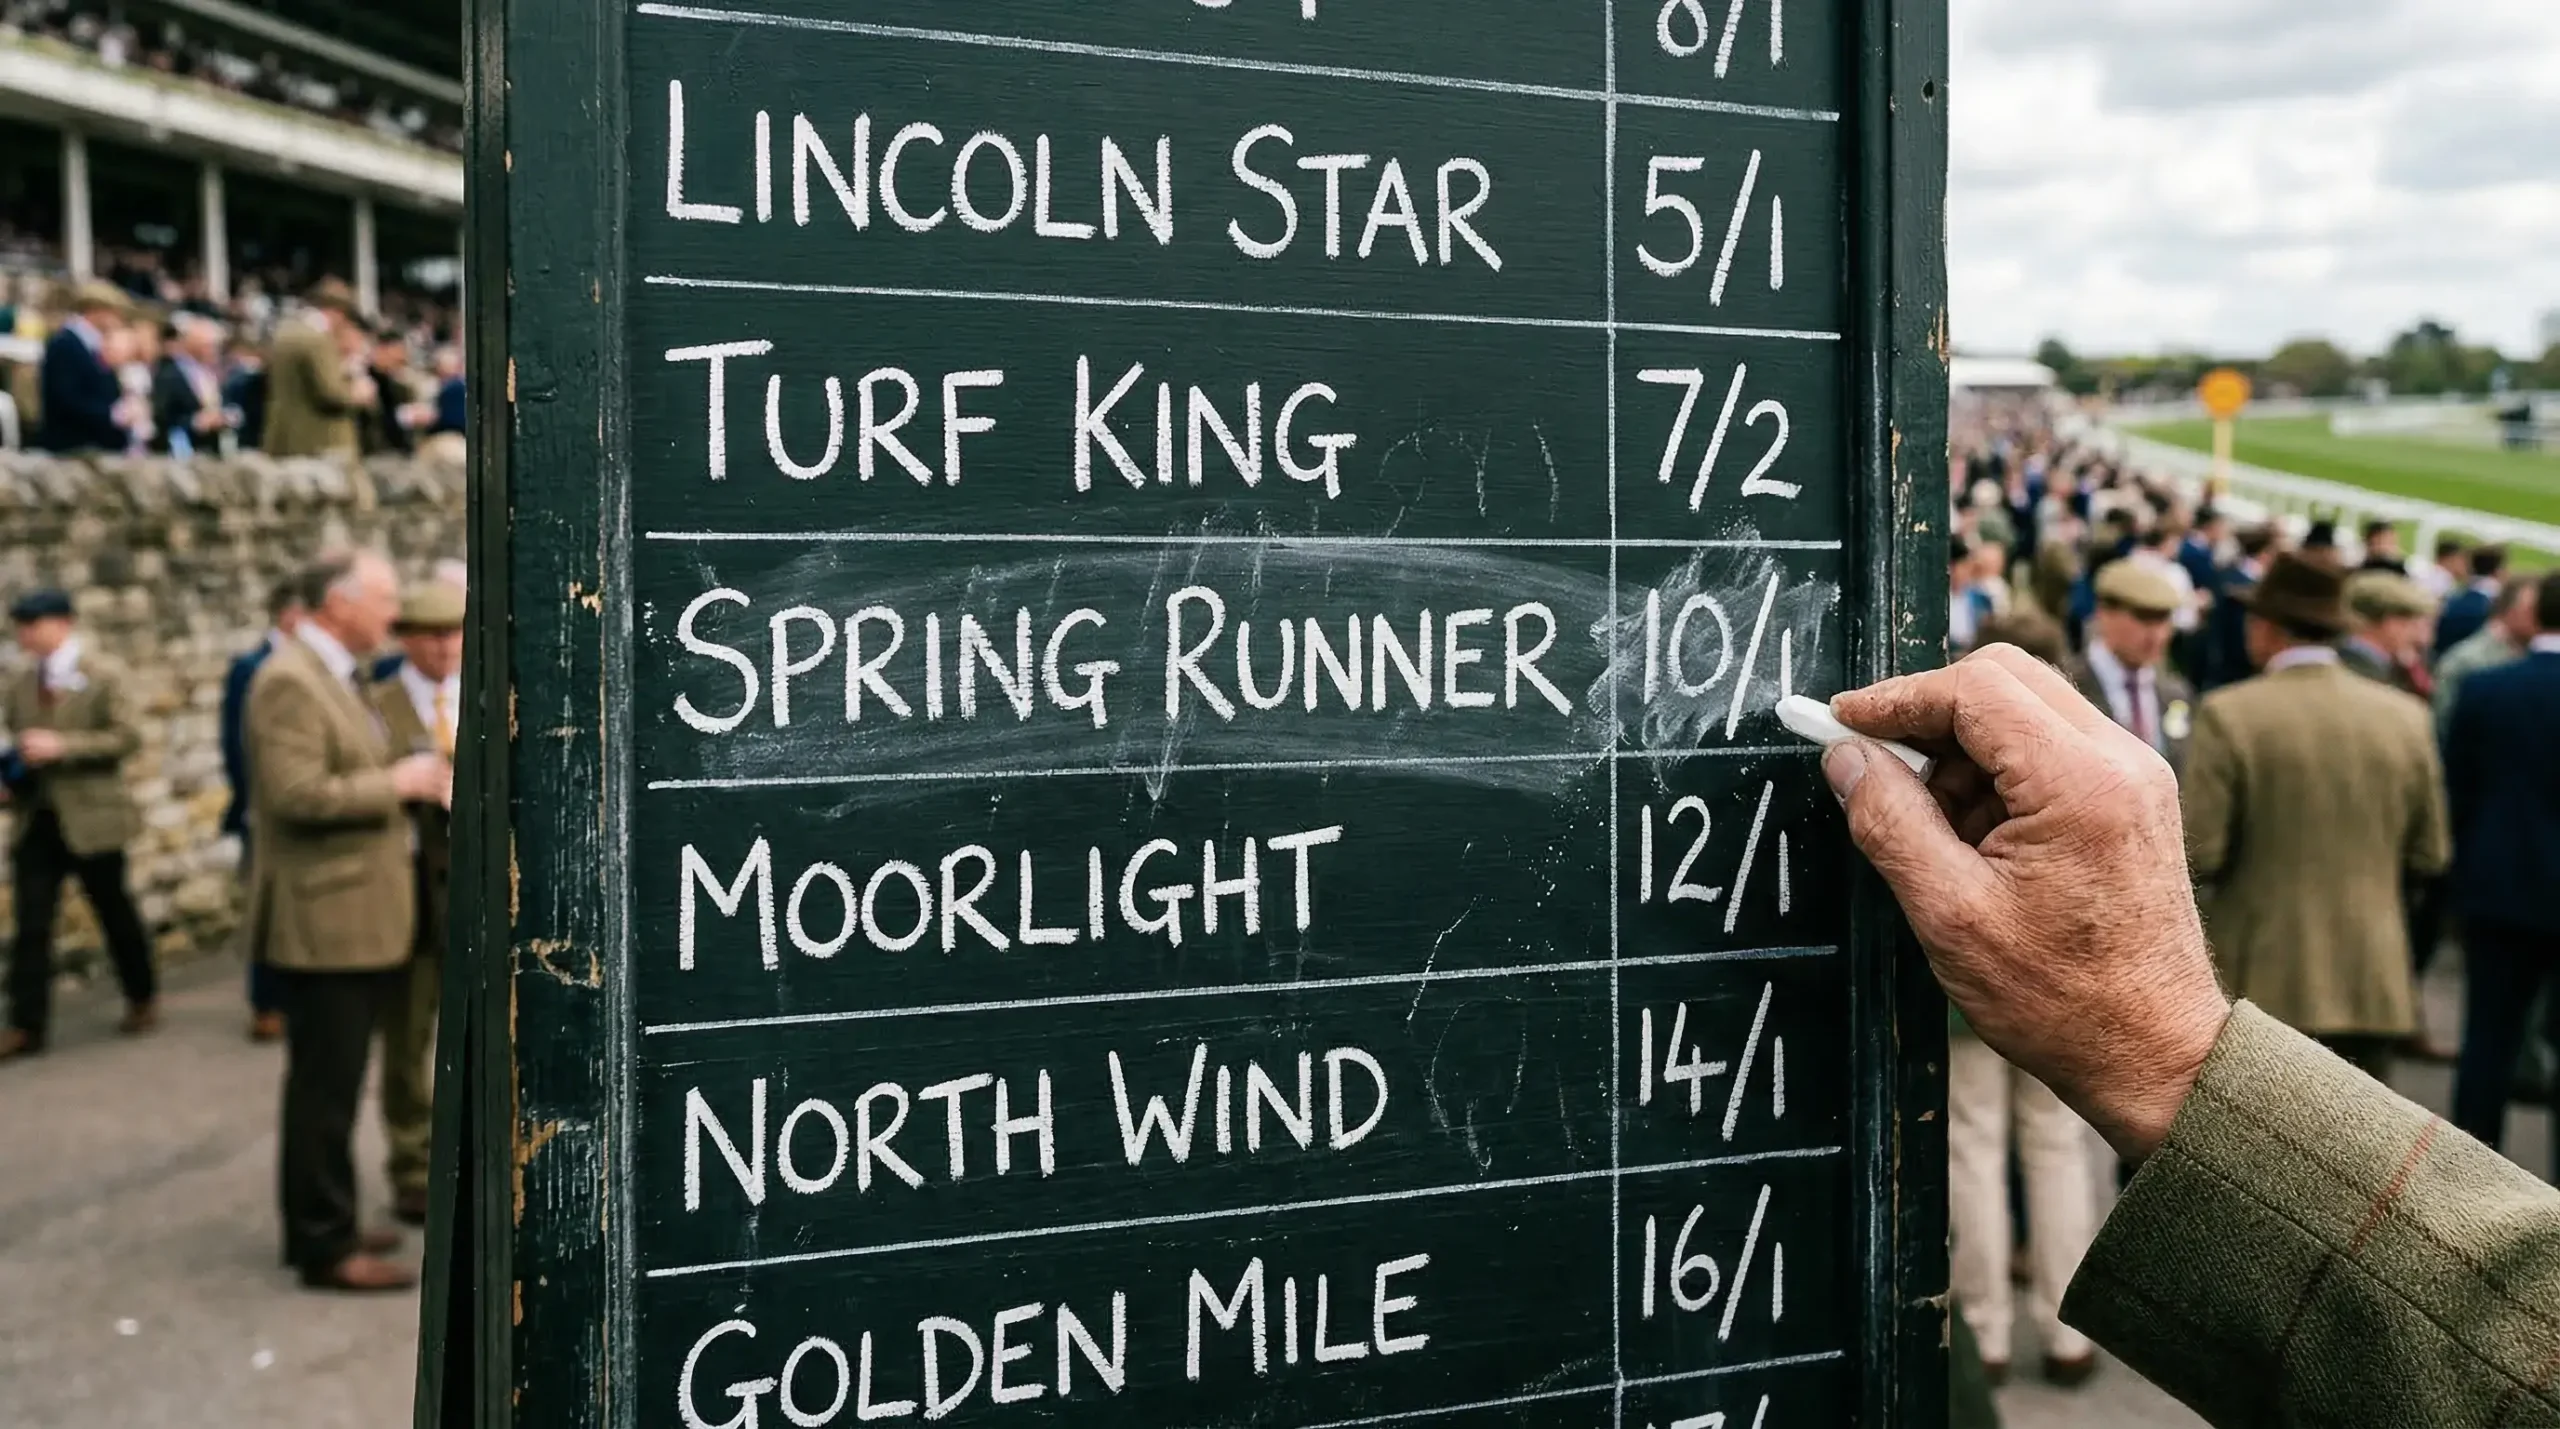 8/1
LINCOLN STAR 5/1
TURF KING 7/2
SPRING RUNNER 10/1
MOORLIGHT 12/1
NORTH WIND 14/1
GOLDEN MILE 16/1